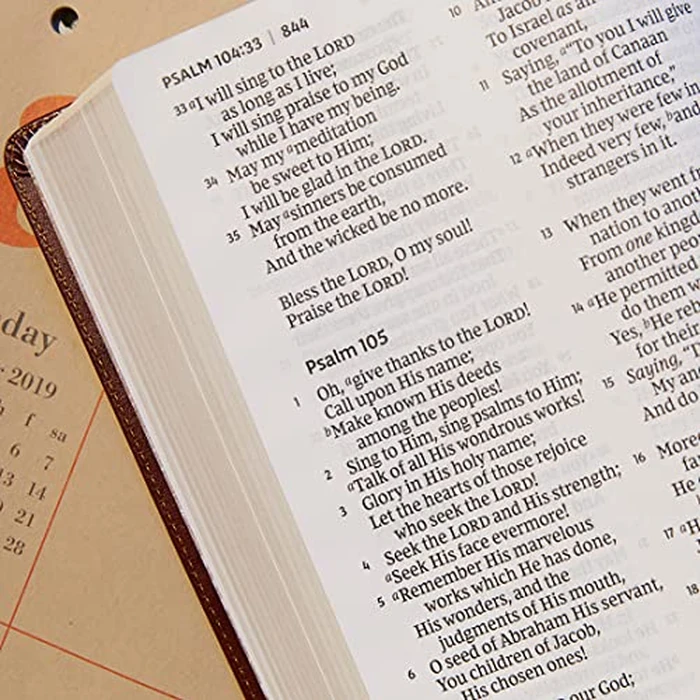 day
2019
f sa
6 7
13 14
20 21
28
PSALM 104:33 | 844
33 aI will sing to the LORD
as long as I live;
I will sing praise to my God
while I have my being.
34 May my ameditation
be sweet to Him;
I will be glad in the LORD.
35 May asinners be consumed
from the earth,
And the wicked be no more.
Bless the LORD, O my soul!
Praise the LORD!
Psalm 105
1 Oh, agive thanks to the LORD!
Call upon His name;
bMake known His deeds
among the peoples!
2 Sing to Him, sing psalms to Him;
aTalk of all His wondrous works!
3 Glory in His holy name;
Let the hearts of those rejoice
who seek the LORD!
4 Seek the LORD and His strength;
aSeek His face evermore!
5 aRemember His marvelous
works which He has done,
His wonders, and the
judgments of His mouth,
6 O seed of Abraham His servant,
You children of Jacob,
His chosen ones!
our God;
10
Jacob
To Israel as an
covenant,
11 Saying, a"To you I will give
the land of Canaan
As the allotment of
your inheritance,"
12 aWhen they were few in
Indeed very few, band
strangers in it.
13 When they went
nation to
From one
another
14 aHe permitted
do them
Yes, bHe
for their
15 Saying,
My
And do
16
He
17 aH
18